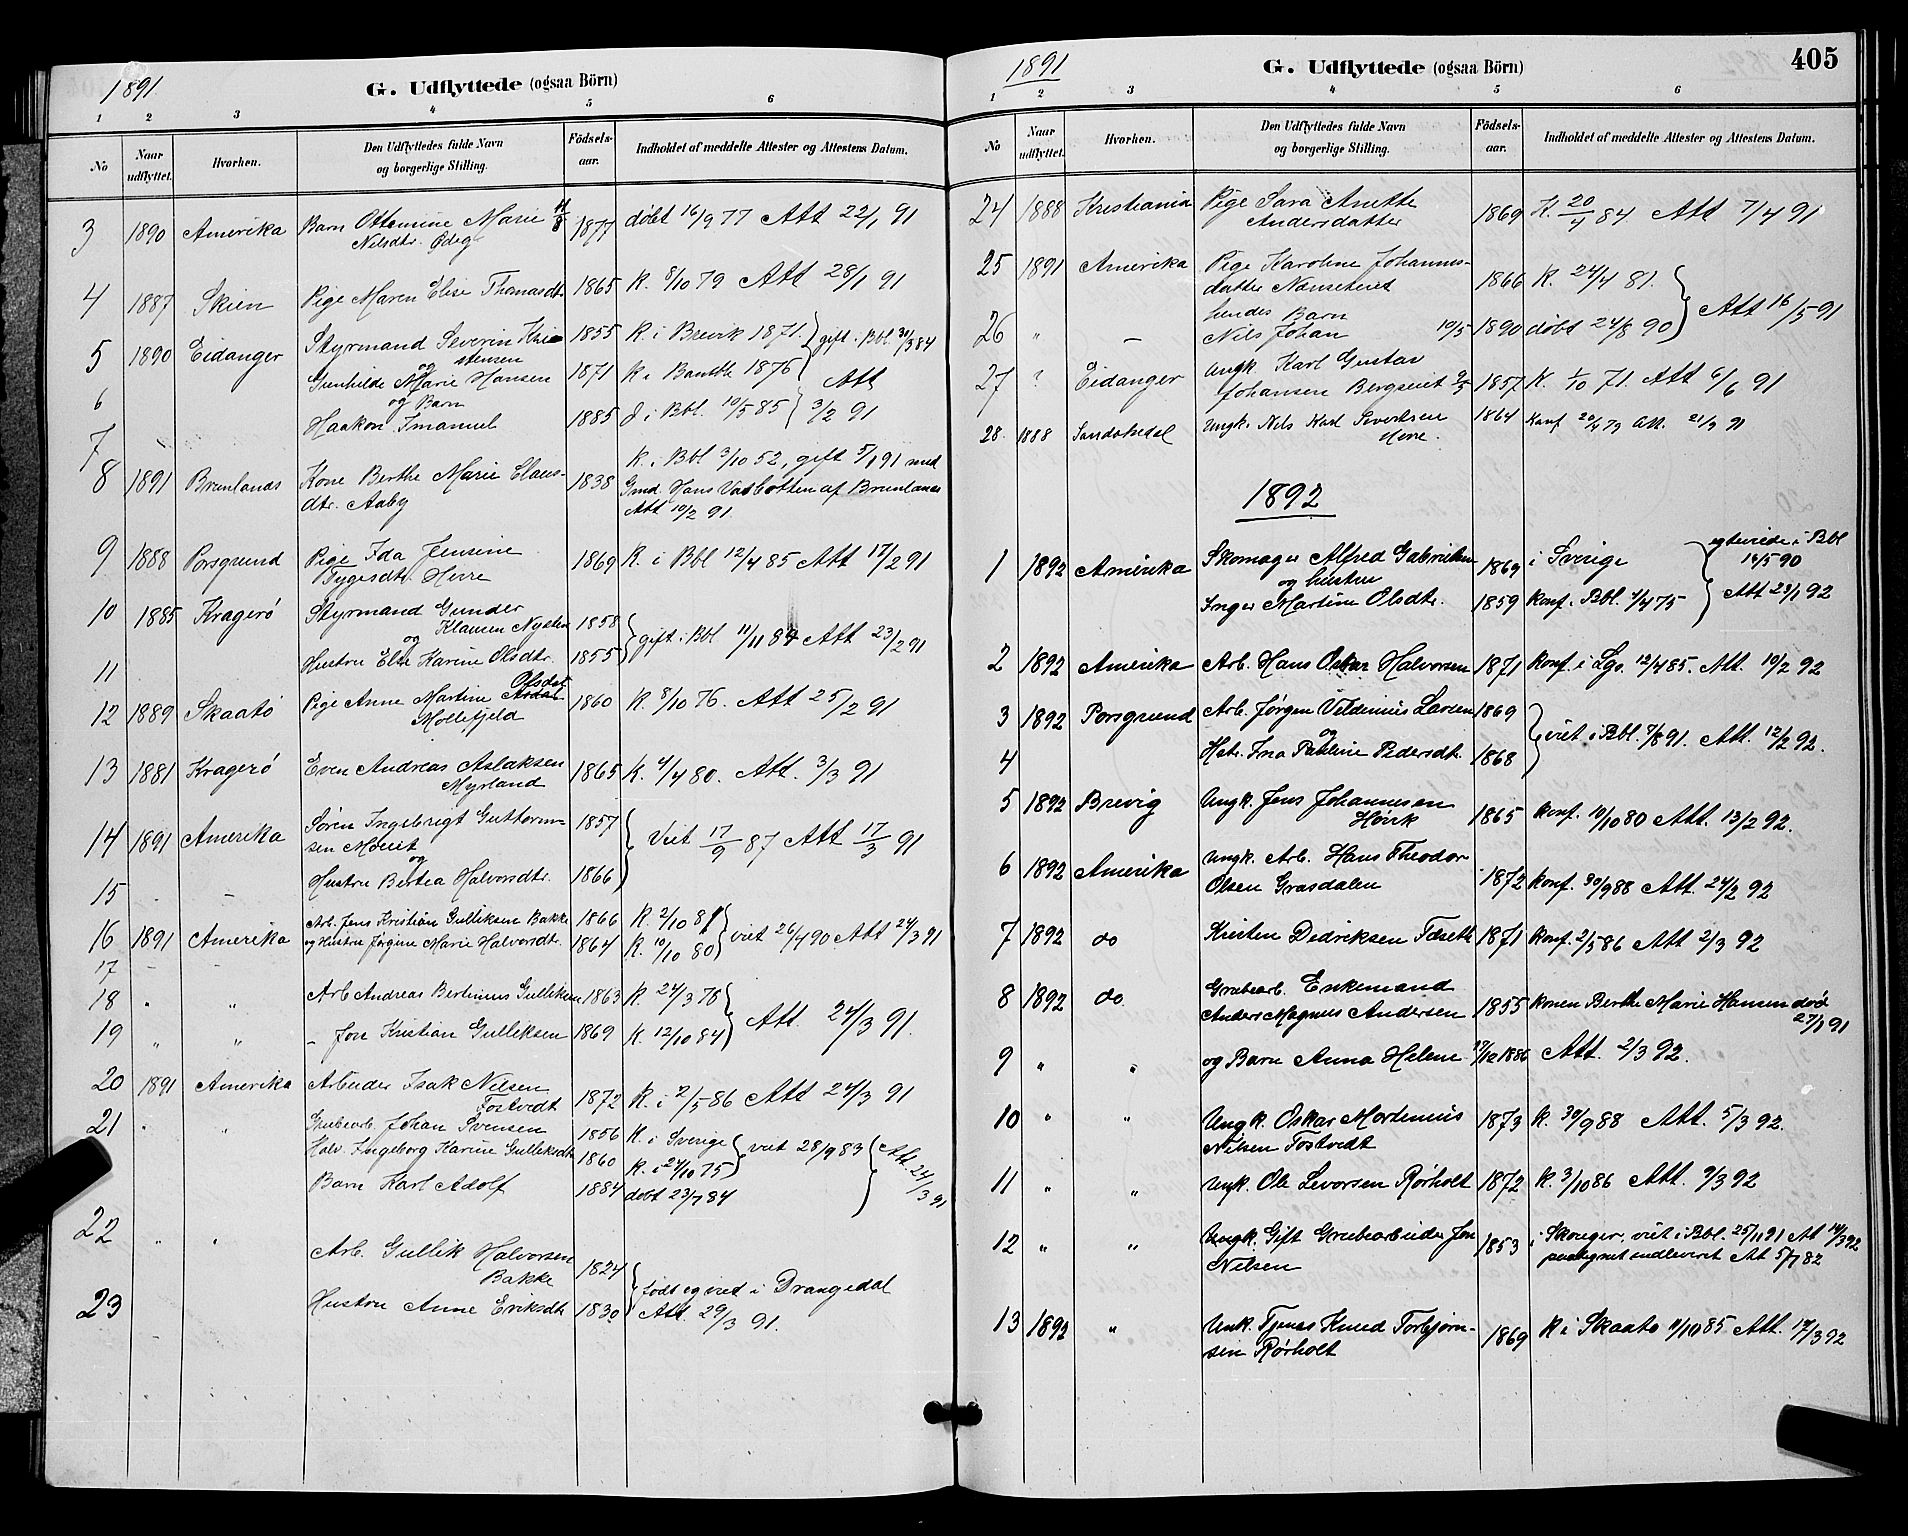 1891
G. Udflyttede (ogsaa Börn)
1 2 3 4 5 6
No Naar udflyttet. Hvorhen. Den Udflyttedes fulde Navn og borgerlige Stilling. Födsels-aar. Indholdet af meddelte Attester og Attestens Datum.
3 1890 Amerika Barn Ottomine Marie 1877 döbt 16/9 77 Att 22/1 91
Nilsdtr.
4 1887 Skien Pige Maren Elise Thomasdt. 1865 K. 8/10 79 Att 28/1 91
5 1890 Eidanger Styrmand Severin Kri- 1855 K. i Brevik 1871 gift i Bbl. 30/3 84
stensen
og
6 Gunhilde Marie Hansen 1871 K i Bamble 1876 Att
og Barn
7 Haakon Imanuel 1885 d i Bbl. 10/5 85 3/2 91
8 1891 Brunlanäs Kone Berthe Marie Claus- 1838 K. i Bbl 3/10 52, gift 5/1 91 med
dtr. Aaby Gmd. Hans Vasbotten af Brunlanes
Att 10/2 91.
9 1888 Porsgrund Pige Ida Jensine 1869 K. i Bbl 12/4 85 Att 17/2 91
Tygesdtr. Herre
10 1885 Kragerö Styrmand Gunder 1858
Klausen Nysten gift i Bbl 11/11 84 Att 23/2 91
og
11 Hustru Else Karine Olsdtr. 1855
12 1889 Skaatö Pige Anne Martine Olsdat. 1860 K. 8/10 76. Att 25/2 91
Mollefjeld
13 1881 Kragerö Even Andreas Aslaksen 1865 K. 4/4 80. Att. 3/3 91
Myrland
14 1891 Amerika Sören Ingebrigt Guttorm- 1857 Viet 17/9 87 Att 17/3 91
sen
og
15 Hustru Bertea Halvorsdtr. 1866
16 1891 Amerika Arb. Jens Kristian Gulliksen Bakke 1866 K. 2/10 81 viet 26/4 90 Att 24/3 91
17 og Hustru Jörgine Marie Halvorsdtr. 1864 K. 10/10 80
18 " Arb Andreas Bertinius Gulliksen 1863 K. 24/3 78 Att. 24/3 91.
19 " " – Jon Kristian Gulliksen 1869 K. 12/10 84
20 1891 Amerika Arbeider Isak Nilsen 1872 K. i 2/5 86 Att 24/3 91
Tostvedt
21 Grubearb. Johan Svensen 1856 K. i Sverige viet 28/9 83 Att. 24/3 91
Ingeborg Karine Gulliksdt 1860 K. i 24/10 75
Barn Karl Adolf 1884 döbt 23/7 84
22 Arb. Gullik Halvorsen 1824
Bakke födt og viet i Drangedal
23 Hustru Anne Eriksdt 1830 Att. 29/3 91.
1891
G. Udflyttede (ogsaa Börn)
405
1 2 3 4 5 6
No Naar udflyttet. Hvorhen. Den Udflyttedes fulde Navn og borgerlige Stilling. Födsels-aar. Indholdet af meddelte Attester og Attestens Datum.
24 1888 Kristiania Pige Sara Anette 1869 K. 20/4 84. Att 7/4 91
Andersdatter
25 1891 Amerika Pige Karoline Johannes- 1866 K. 24/4 81.
datter Att 16/5 91
hendes Barn
26 " – Nils Johan 10/5 1890 döbt 24/8 90
27 ? Eidanger Ungk. Karl Gustav
Johansen 1857 K. 1/10 71. Att 6/6 91
28. 1888 Sandökedal Ungk. Nils Karl Sivertsen 1864 Konf 20/4 79 Att. 21/9 91
Herre.
1892
1 1892 Amerika Skomager Alfred Gabrielsen 1869 i Sverige egteviede i Bbl
og hustru 16/5 90
Inger Martine Olsdtr. 1859 Konf. i Bbl. 4/4 75 Att 23/1 92
2 1892 Amerika Arb. Hans Oskar Halvorsen 1871 Konf i Lgs. 12/4 85. Att. 10/2 92
3 1892 Porsgrund Arb. Jørgen Larsen 1869
og viet i Bbl. 7/8 91. Att. 12/2 92.
4 Hstr. Ina Pauline Pedersdt. 1868
5 1892 Brevig Ungk. Jens Johannesen 1865 Konf. 10/10 80 Att. 13/2 92.
6 1892 Amerika Ungk. Arb. Hans Theodor
Olsen Grasdalen 1872 Konf. 30/9 88 Att. 24/2 92
7 1892 do Kristen Dedriksen 1871 Konf. 2/5 86 Att 2/3 92
8 1892 do Grubearb. Enkemand
Anders Magnus Andersen 1855 Konen Berthe Marie Hansen död
27/1 91
9 " " og Barn Anna Helene 17/12 1886 Att. 2/3 92.
10 " " Ungk. Oskar Mortinius 1873 K. 30/9 88 Att. 5/3 92.
Nilsen Tostvedt
11 " " Ungk. Ole Levorsen Rørholt 1872 K. 3/10 86 Att. 9/3 92
12 " " Ungk. Gift Grubearbeider Jon 1853 i Skouger, viet i Bbl. 25/1 91 At 14/3 92
Nilsen At 5/7 82
13 1892 " Unk. Tjenes Knud Torbjørn- 1869 K i Skaatö 11/10 85 Att. 14/3 92
sen Rørholt